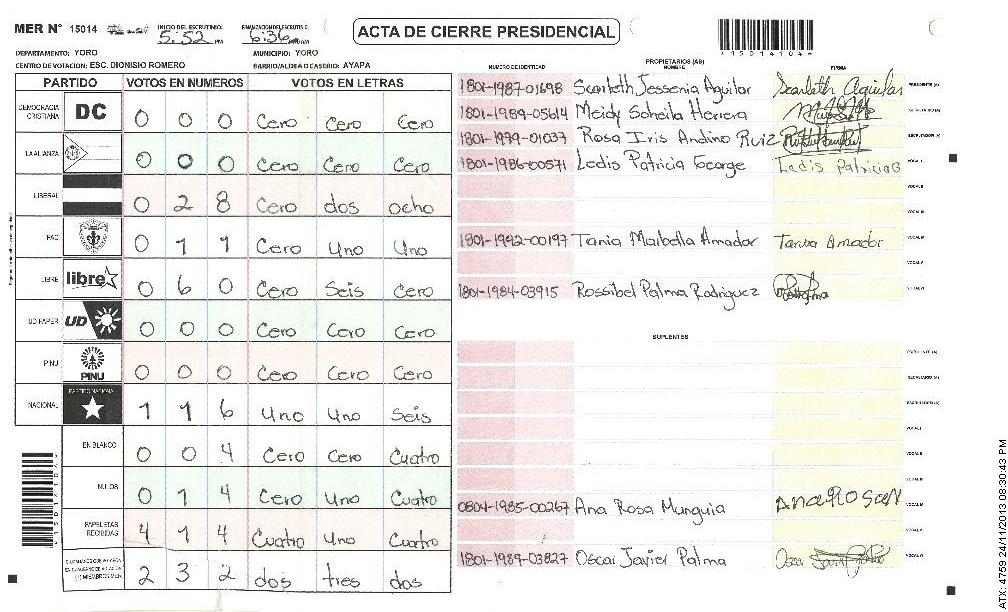 MER Nº 15014
INICIO DEL ESCRUTINIO: 5:52
FINALIZACION DEL ESCRUTINIO: 6:36
ACTA DE CIERRE PRESIDENCIAL
DEPARTAMENTO: YORO
MUNICIPIO: YORO
CENTRO DE VOTACION: ESC. DIONISIO ROMERO
BARRIO/ALDEA O CASERIO: AYAPA
PARTIDO VOTOS EN NUMEROS VOTOS EN LETRAS
DEMOCRACIA CRISTIANA DC 0 0 0 Cero Cero Cero
LA ALIANZA 0 0 0 Cero Cero Cero
LIBERAL 0 2 8 Cero dos ocho
PAC 0 1 1 Cero Uno Uno
LIBRE libre 0 6 0 Cero Seis Cero
UD FAPER UD 0 0 0 Cero Cero Cero
PINU PINU 0 0 0 Cero Cero Cero
NACIONAL PARTIDO NACIONAL 1 1 6 Uno Uno Seis
EN BLANCO 0 0 4 Cero Cero Cuatro
NULOS 0 1 4 Cero Uno Cuatro
PAPELETAS RECIBIDAS 4 1 4 Cuatro Uno Cuatro
2 3 2 dos tres dos
PROPIETARIOS (AS)
NUMERO DE IDENTIDAD NOMBRE FIRMA
1801-1987-01698 Scarleth Jessenia Aguilar Scarleth Aguilar PRESIDENTE (A)
1801-1989-05614 Meidy Soheila Herrera SECRETARIO (A)
1801-1979-01037 Rosa Iris Andino Ruiz ESCRUTADOR (A)
1801-1986-00571 Ledis Patricia George Ledis Patricia G VOCAL I
VOCAL II
VOCAL III
1801-1992-00197 Tania Maibella Amador Tania Amador VOCAL IV
VOCAL V
1801-1984-03915 Rossibel Palma Rodriguez VOCAL VI
SUPLENTES
PRESIDENTE (A)
SECRETARIO (A)
ESCRUTADOR (A)
VOCAL I
VOCAL II
VOCAL III
0804-1985-00267 Ana Rosa Munguia ANA ROSA M VOCAL IV
VOCAL V
1801-1989-03827 Oscar Javier Palma Oscar VOCAL VI
ATX: 4759 24/11/2013 08:30:43 PM